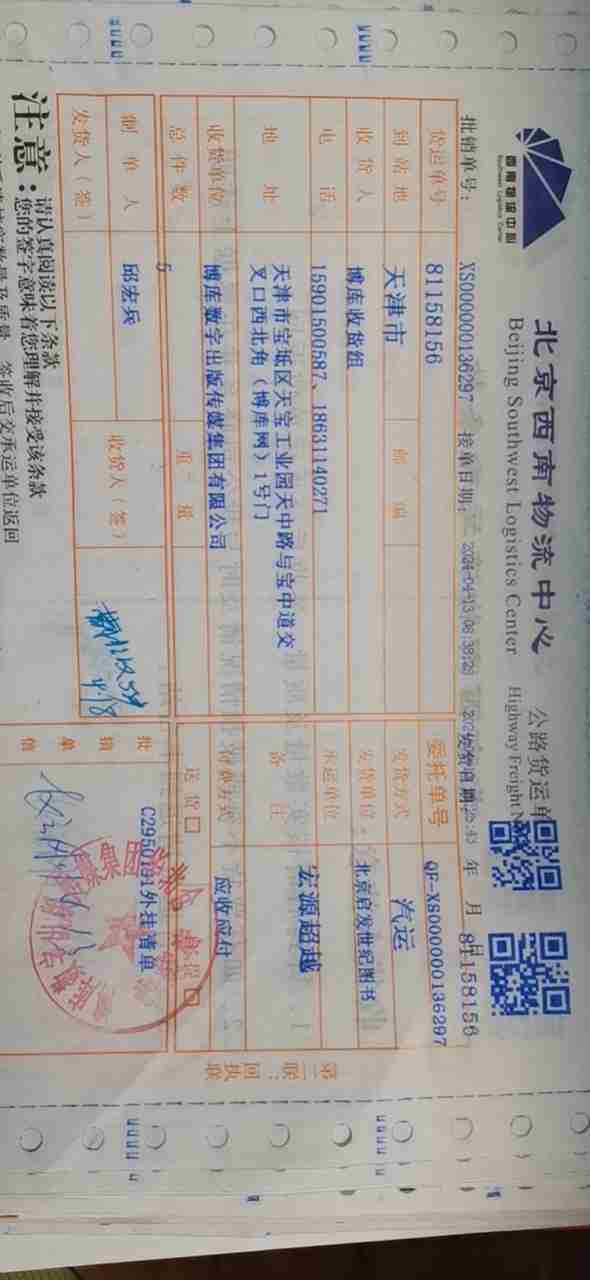 西南物流中心
Southwest Logistics Center
北京西南物流中心
Beijing Southwest Logistics Center
公路货运单
Highway Freight
批销单号: XS000000136297 接单日期: 2024-04-13 年 月 日 81158156
货运单号 81158156 委托单号 QF-XS000000136297
到站地 天津市 邮编 发货方式 汽运
收货人 博库收货组 发货单位 北京启发世纪图书
电话 15901500587、18631140271 承运单位 宏源超越
地址 天津市宝坻区天宝工业园天中路与宝中道交
叉口西北角(博库网)1号门
备注
收货单位 博库数字出版传媒集团有限公司 付款方式 应收应付
总件数 5 重量 送货□ 自提□
制单人 邱宏兵 收货人(签)
发货人(签)
批销单信 C2950191外挂清单
4/8
第二联:回执联
注意:
请认真阅读以下条款
您的签字意味着您理解并接受该条款
签收后交承运单位返回